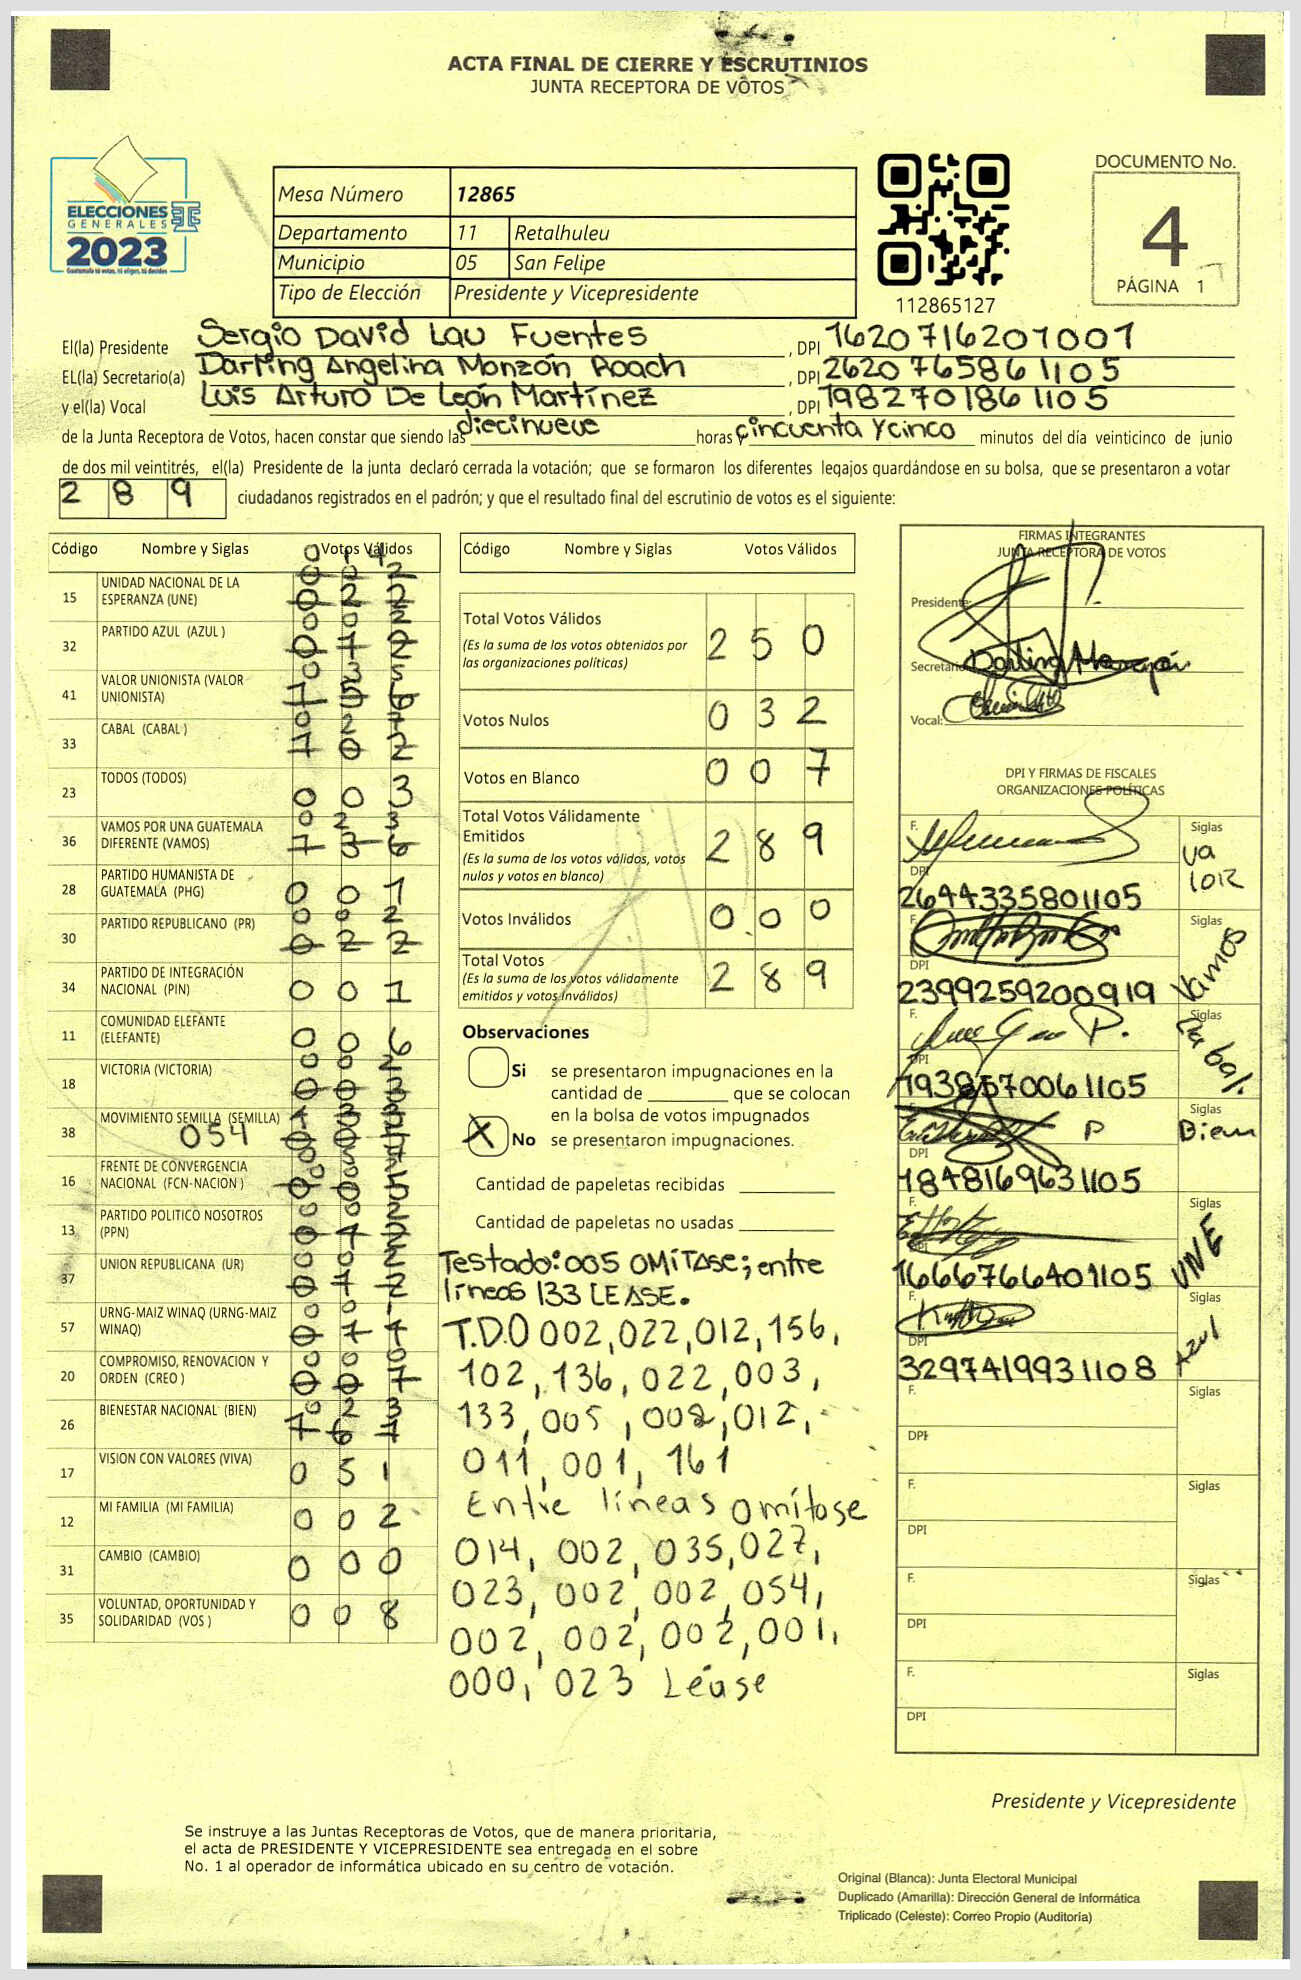 ACTA FINAL DE CIERRE Y ESCRUTINIOS
JUNTA RECEPTORA DE VOTOS
ELECCIONES
GENERALES
2023
Guatemala tú votas, tú eliges, tú decides
Mesa Número 12865
Departamento 11 Retalhuleu
Municipio 05 San Felipe
Tipo de Elección Presidente y Vicepresidente
112865127
DOCUMENTO No.
4
PÁGINA 1
El(la) Presidente Sergio David Lau Fuentes, DPI 1620716201001
EL(la) Secretario(a) Darling Angelina Monzón Roach, DPI 2620765861105
y el(la) Vocal Luis Arturo De León Martínez, DPI 1982701861105
de la Junta Receptora de Votos, hacen constar que siendo las diecinueve horas y cincuenta y cinco minutos del día veinticinco de junio
de dos mil veintitrés, el(la) Presidente de la junta declaró cerrada la votación; que se formaron los diferentes legajos guardándose en su bolsa, que se presentaron a votar
289 ciudadanos registrados en el padrón; y que el resultado final del escrutinio de votos es el siguiente:
Código Nombre y Siglas Votos Válidos
15 UNIDAD NACIONAL DE LA
ESPERANZA (UNE)
32 PARTIDO AZUL (AZUL )
41 VALOR UNIONISTA (VALOR
UNIONISTA)
33 CABAL (CABAL )
23 TODOS (TODOS) 0 0 3
36 VAMOS POR UNA GUATEMALA
DIFERENTE (VAMOS)
28 PARTIDO HUMANISTA DE
GUATEMALA (PHG) 0 0 1
30 PARTIDO REPUBLICANO (PR)
34 PARTIDO DE INTEGRACIÓN
NACIONAL (PIN) 0 0 1
11 COMUNIDAD ELEFANTE
(ELEFANTE) 0 0 6
18 VICTORIA (VICTORIA)
38 MOVIMIENTO SEMILLA (SEMILLA)
054
16 FRENTE DE CONVERGENCIA
NACIONAL (FCN-NACION )
13 PARTIDO POLITICO NOSOTROS
(PPN)
37 UNION REPUBLICANA (UR)
57 URNG-MAIZ WINAQ (URNG-MAIZ
WINAQ)
20 COMPROMISO, RENOVACION Y
ORDEN (CREO )
26 BIENESTAR NACIONAL (BIEN)
17 VISION CON VALORES (VIVA) 0 5 1
12 MI FAMILIA (MI FAMILIA) 0 0 2
31 CAMBIO (CAMBIO) 0 0 0
35 VOLUNTAD, OPORTUNIDAD Y
SOLIDARIDAD (VOS ) 0 0 8
Código Nombre y Siglas Votos Válidos
Total Votos Válidos 2 5 0
(Es la suma de los votos obtenidos por
las organizaciones políticas)
Votos Nulos 0 3 2
Votos en Blanco 0 0 7
Total Votos Válidamente
Emitidos 2 8 9
(Es la suma de los votos válidos, votos
nulos y votos en blanco)
Votos Inválidos 0 0 0
Total Votos 2 8 9
(Es la suma de los votos válidamente
emitidos y votos inválidos)
Observaciones
Si se presentaron impugnaciones en la
cantidad de ________ que se colocan
en la bolsa de votos impugnados
X No se presentaron impugnaciones.
Cantidad de papeletas recibidas
Cantidad de papeletas no usadas
Testado: 005 OMITASE; entre
líneas 133 LEASE.
T.D.O 002, 022, 012, 156,
102, 136, 022, 003,
133, 005, 002, 012,
011, 001, 161
Entre líneas omítase
014, 002, 035, 027,
023, 002, 002, 054,
002, 002, 002, 001,
000, 023 Léase
FIRMAS INTEGRANTES
JUNTA RECEPTORA DE VOTOS
Presidente:
Secretario: Darling Monzón
Vocal:
DPI Y FIRMAS DE FISCALES
ORGANIZACIONES POLÍTICAS
F. Siglas
valor
DPI
2644335801105
F. Siglas
Vamos
DPI
2399259200919
F. Siglas
Cabal
DPI
1938570061105
F. Siglas
Bien
DPI
1848169631105
F. Siglas
VIVE
DPI
1666766401105
F. Siglas
Azul
DPI
3297419931108
F. Siglas
DPI
F. Siglas
DPI
F. Siglas
DPI
F. Siglas
DPI
Presidente y Vicepresidente
Se instruye a las Juntas Receptoras de Votos, que de manera prioritaria,
el acta de PRESIDENTE Y VICEPRESIDENTE sea entregada en el sobre
No. 1 al operador de informática ubicado en su centro de votación.
Original (Blanca): Junta Electoral Municipal
Duplicado (Amarilla): Dirección General de Informática
Triplicado (Celeste): Correo Propio (Auditoría)